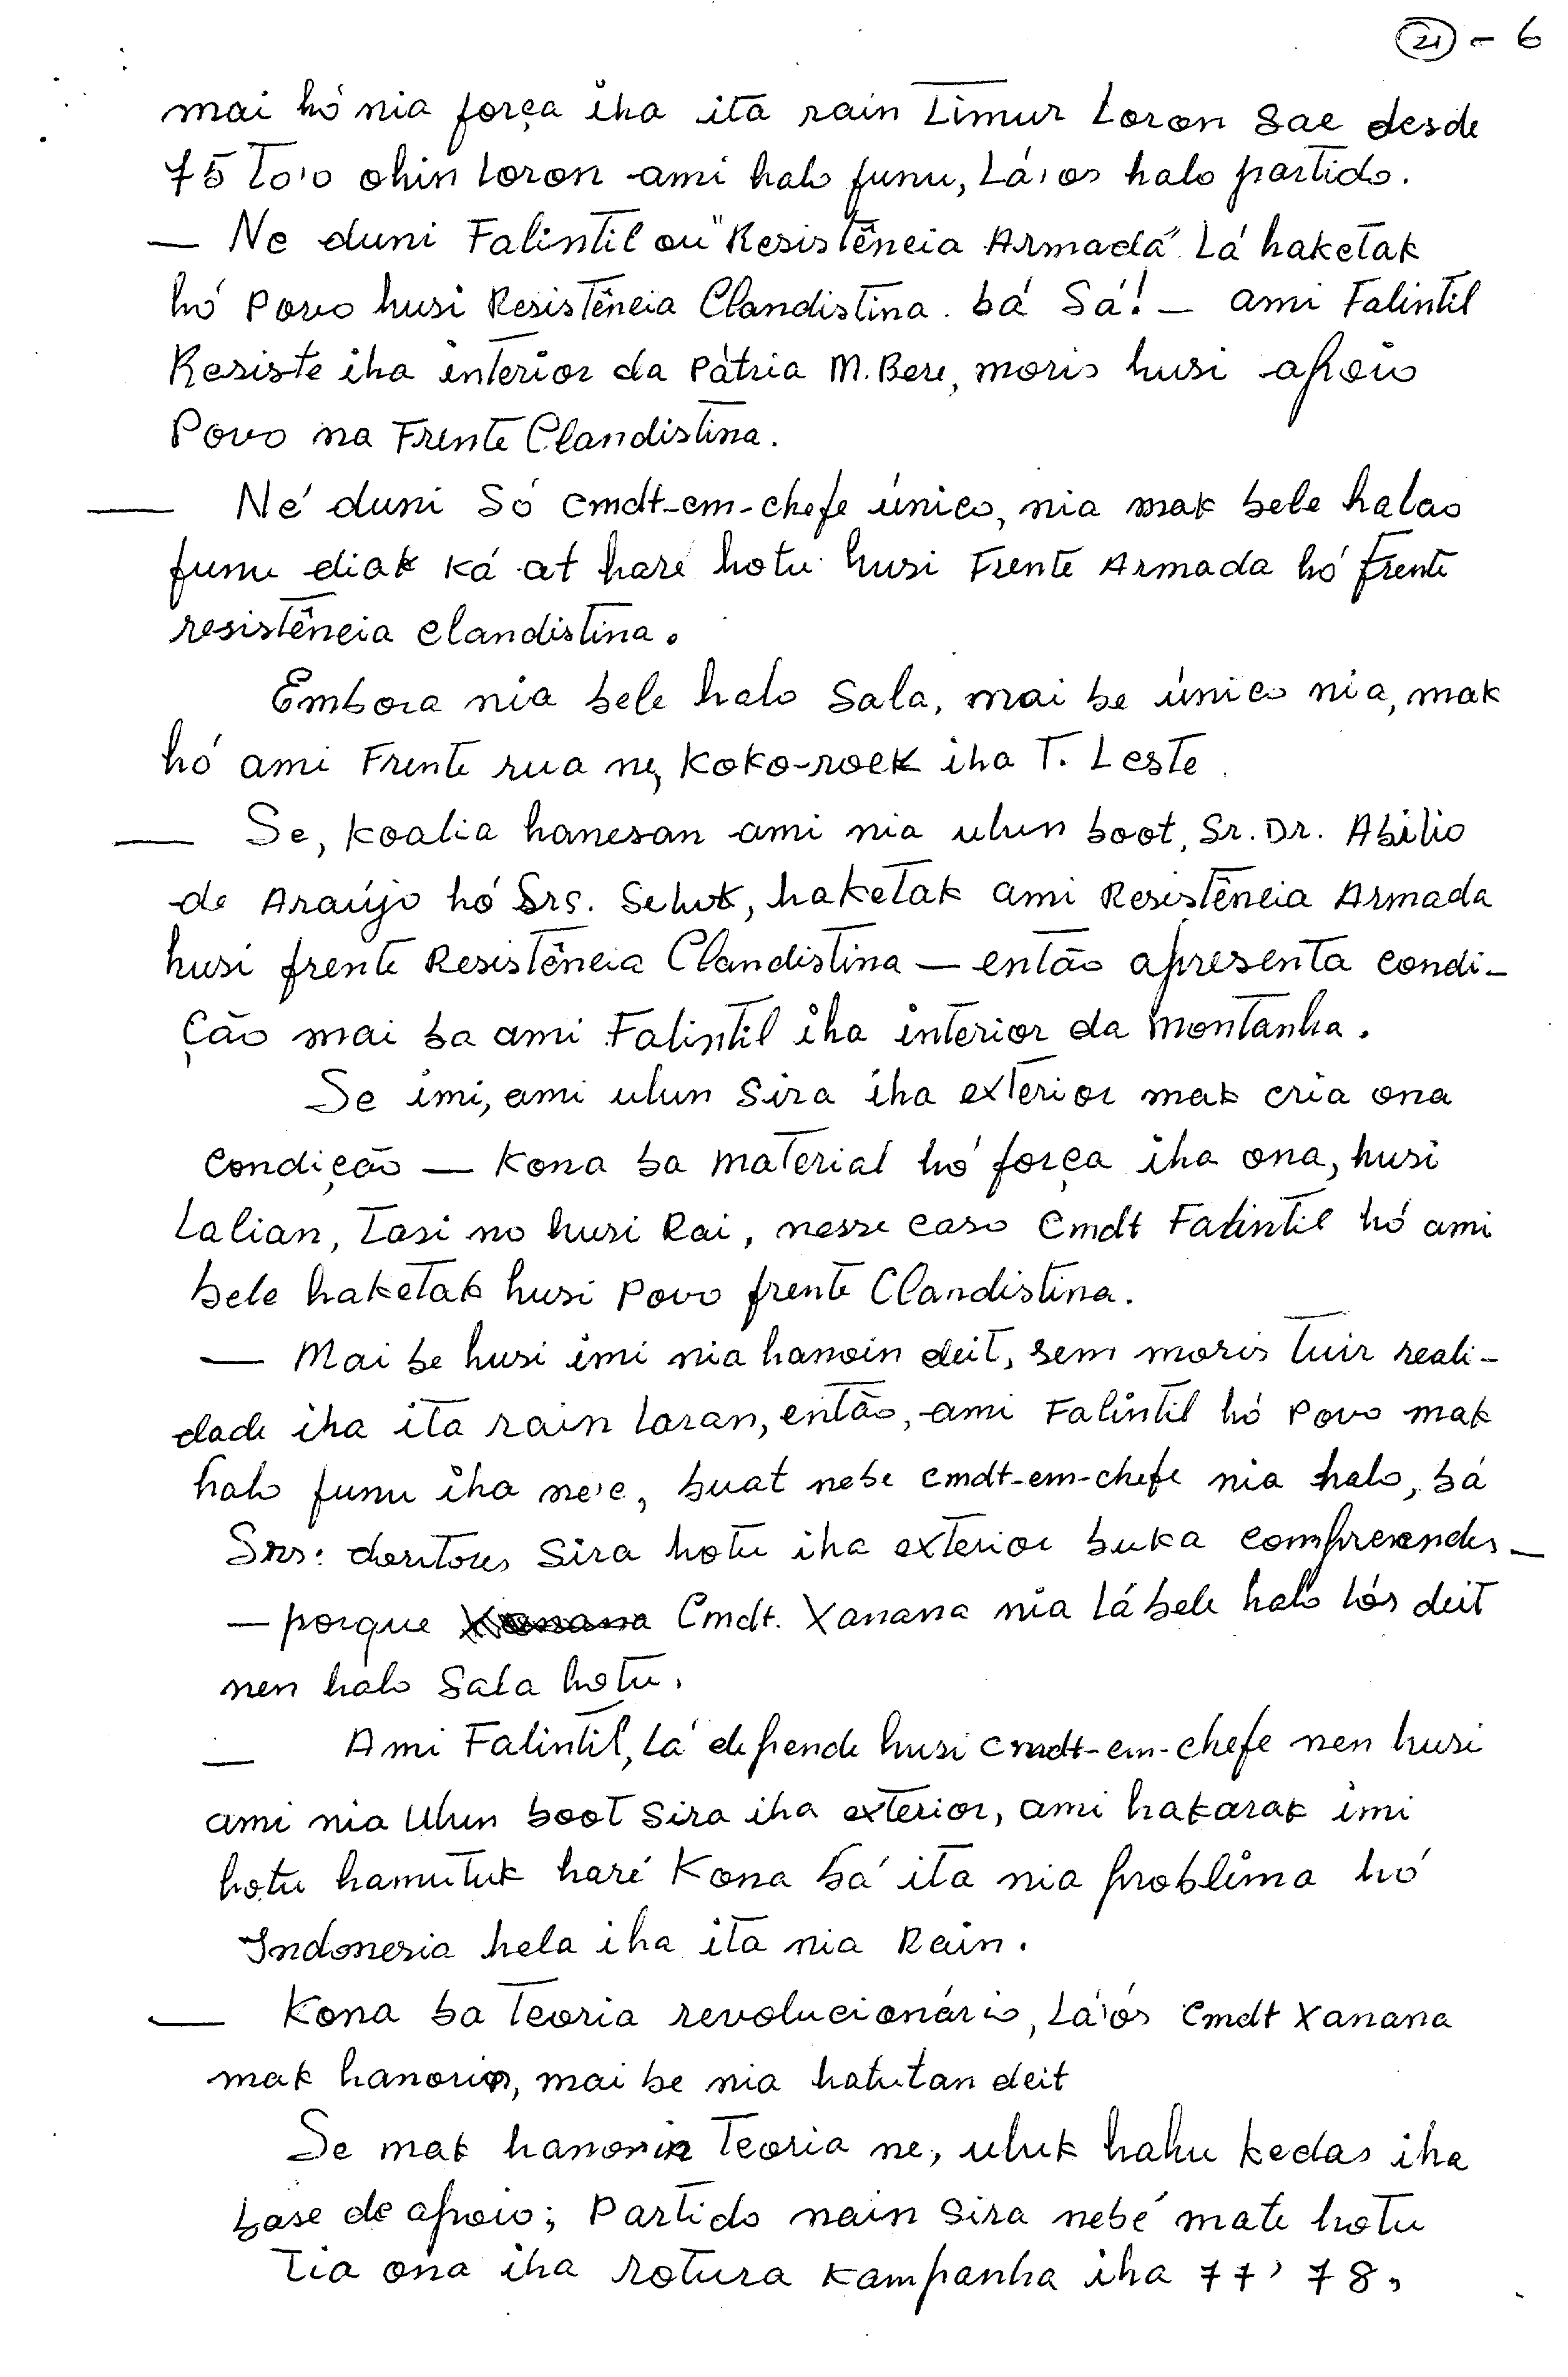 21 - 6
mai hó nia força iha ita rain Timur Loron Sae desde
75 To'o ohin loron ami halo funu, Lá'os halo partido.
— Ne duni Falintil ou "Resistência Armada" Lá haketak
hó Povo husi Resistência Clandistina. bá Sá! — ami Falintil
Resiste iha interior da Pátria M. Bere, moris husi apoio
Povo na Frente Clandistina.
— Né duni Só cmdt-em-chefe único, nia mak bele halao
funu diak ká at haré hotu husi Frente Armada hó frente
resistência clandistina.
Embora nia bele halo Sala, mai be único nia, mak
hó ami Frente rua ne, koko-roek iha T. Leste.
— Se, koalia hanesan ami nia ulun boot, Sr. Dr. Abilio
de Araújo hó Srs. Seluk, haketak ami Resistência Armada
husi frente Resistência Clandistina — então apresenta condi-
ção mai ba ami Falintil iha interior da montanha.
Se imi, ami ulun Sira iha exterior mak cria ona
condição — Kona ba material hó força iha ona, husi
Lalian, Tasi no husi Rai, nesse caso Cmdt Falintil hó ami
bele haketak husi Povo frente Clandistina.
— Mai be husi imi nia hanoin deit, sem moris tuir reali-
dade iha ita rain laran, então, ami Falintil hó Povo mak
halo funu iha ne'e, buat nebe cmdt-em-chefe nia halo, bá
Srs: doutores Sira hotu iha exterior buka compreender_
— porque Cmdt. Xanana nia lá bele halo lós deit
nen halo Sala hotu.
— Ami Falintil, Lá depende husi cmdt-em-chefe nen husi
ami nia Ulun boot Sira iha exterior, ami hakarak imi
hotu hamutuk haré Kona bá ita nia problema hó
Indonesia hela iha ita nia Rain.
— Kona ba Teoria revolucionário, Lá'ós Cmdt Xanana
mak hanorin, mai be nia hatutan deit
Se mak hanorin Teoria ne, uluk hahu kedas iha
base de apoio; Partido nain Sira nebé mate hotu
Tia ona iha rotura kampanha iha 77' 78,